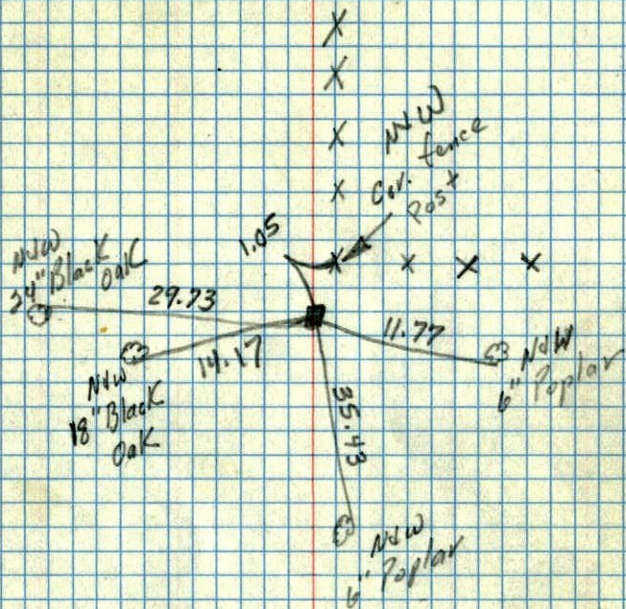 N&W
Cor. fence
Post
1.05
N&W
24" Black
Oak
29.73
11.77
14.17
N&W
18" Black
Oak
N&W
6" Poplar
35.43
N&W
6" Poplar